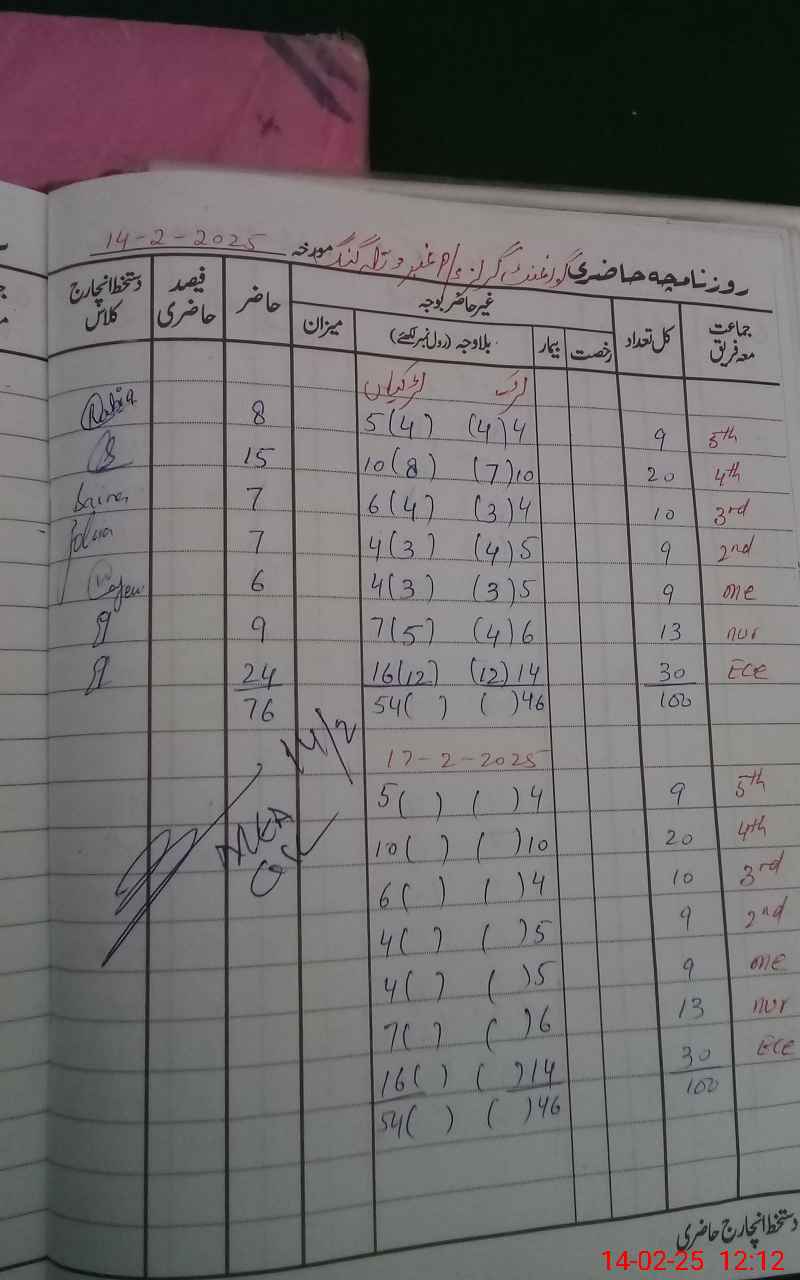 روزنامچہ حاضری گورنمنٹ گرلز مورخہ 14-2-2025
جماعت معہ فریق کل تعداد غیر حاضر بوجہ حاضر فیصد حاضری دستخط انچارج کلاس
رخصت بیمار بلاوجہ (رول نمبر لکھئے) میزان
لڑکیاں
5th 9 4(4) 5(4) 8
4th 20 10(7) 10(8) 15
3rd 10 4(3) 6(4) 7 Saira
2nd 9 5(4) 4(3) 7
one 9 5(3) 4(3) 6
nur 13 6(4) 7(5) 9
ECE 30 14(12) 16(12) 24
100 46( ) 54( ) 76
14/2
17-2-2025
5th 9 4( ) 5( )
4th 20 10( ) 10( )
3rd 10 4( ) 6( )
2nd 9 5( ) 4( )
one 9 5( ) 4( )
nur 13 6( ) 7( )
ECE 30 14( ) 16( )
100 46( ) 54( )
MEA
دستخط انچارج حاضری
14-02-25 12:12